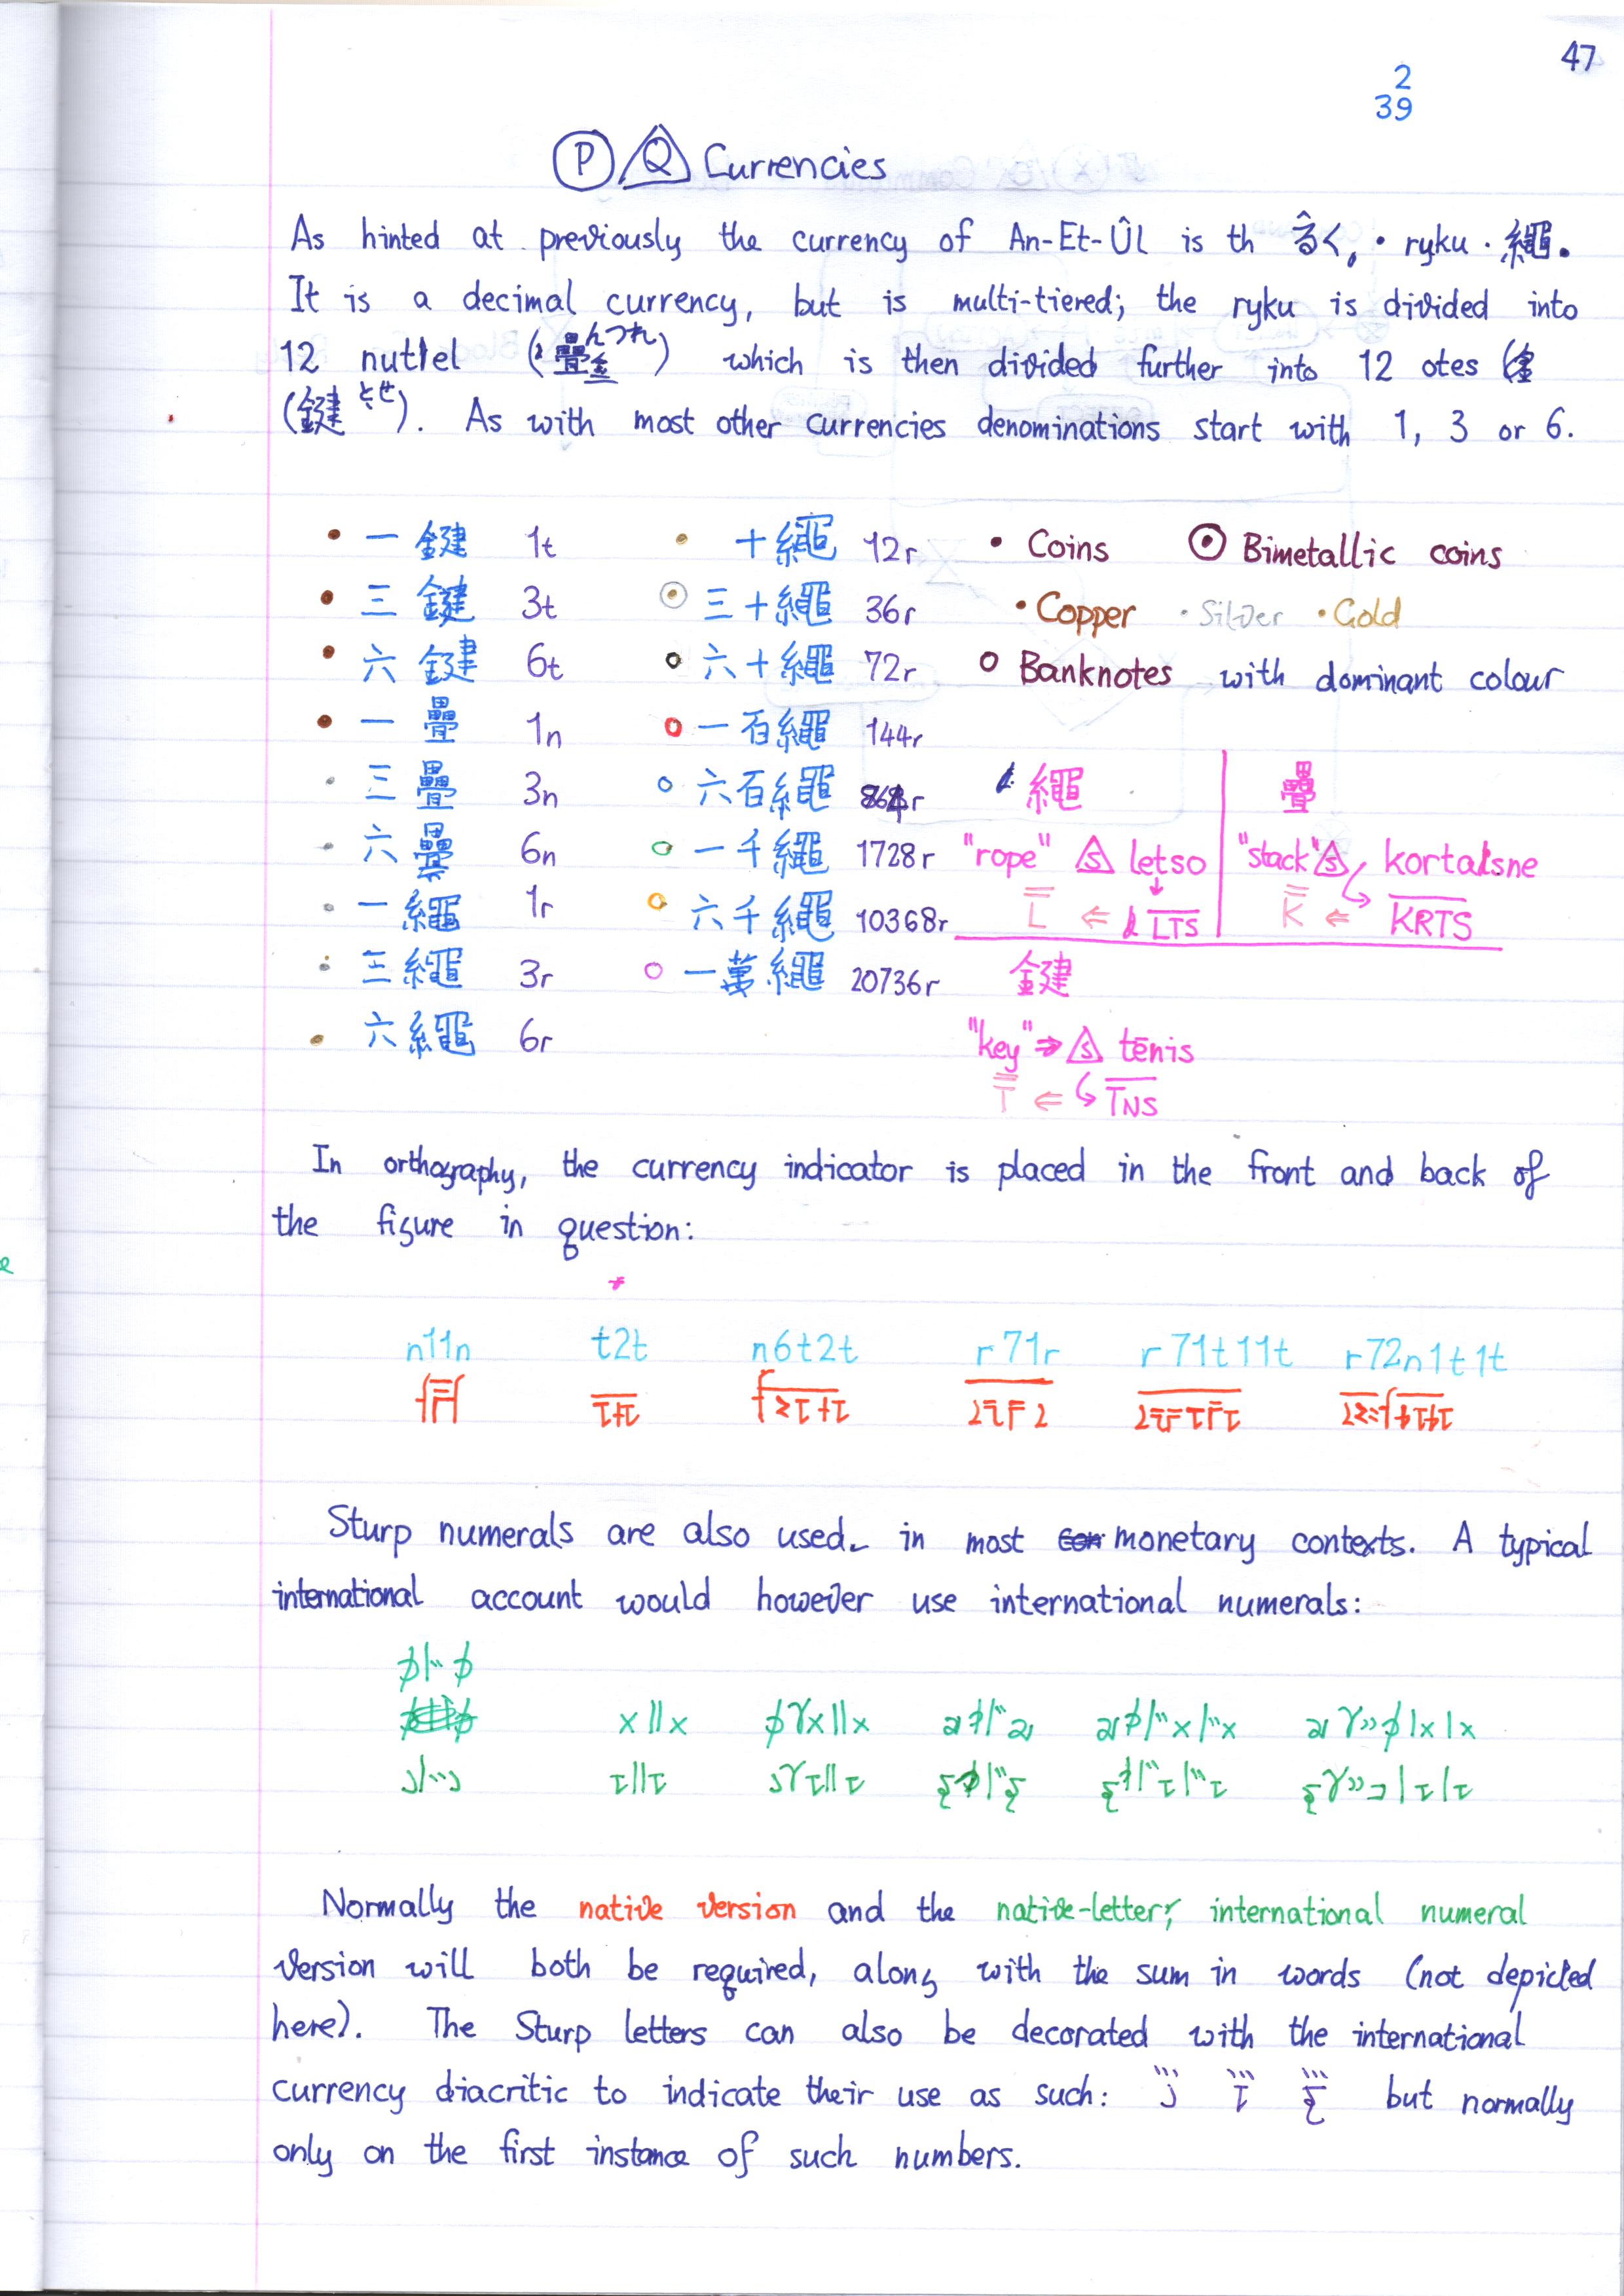 47
2
39
P Q Currencies
As hinted at previously the currency of An-Et-Ûl is th · ryku · 繩.
It is a decimal currency, but is multi-tiered; the ryku is divided into
12 nuttel (疊 んつれ) which is then divided further into 12 otes
(鍵 とせ). As with most other currencies denominations start with 1, 3 or 6.
一鍵 1t 十繩 12r • Coins Bimetallic coins
三鍵 3t 三十繩 36r • Copper • Silver • Gold
六鍵 6t 六十繩 72r Banknotes with dominant colour
一疊 1n 一石繩 144r
三疊 3n 六石繩 864r 繩 疊
六疊 6n 一千繩 1728r "rope" S letso "stack" S kortatsne
一繩 1r 六千繩 10368r L ⇐ LTS K ⇐ KRTS
三繩 3r 一萬繩 20736r 鍵
六繩 6r "key" ⇒ S tēnis
T ⇐ TNS
In orthography, the currency indicator is placed in the front and back of
the figure in question:
n11n t2t n6t2t r71r r71t11t r72n1t1t
Sturp numerals are also used in most monetary contexts. A typical
international account would however use international numerals:
Normally the native version and the native-letter, international numeral
version will both be required, along with the sum in words (not depicted
here). The Sturp letters can also be decorated with the international
currency diacritic to indicate their use as such: but normally
only on the first instance of such numbers.